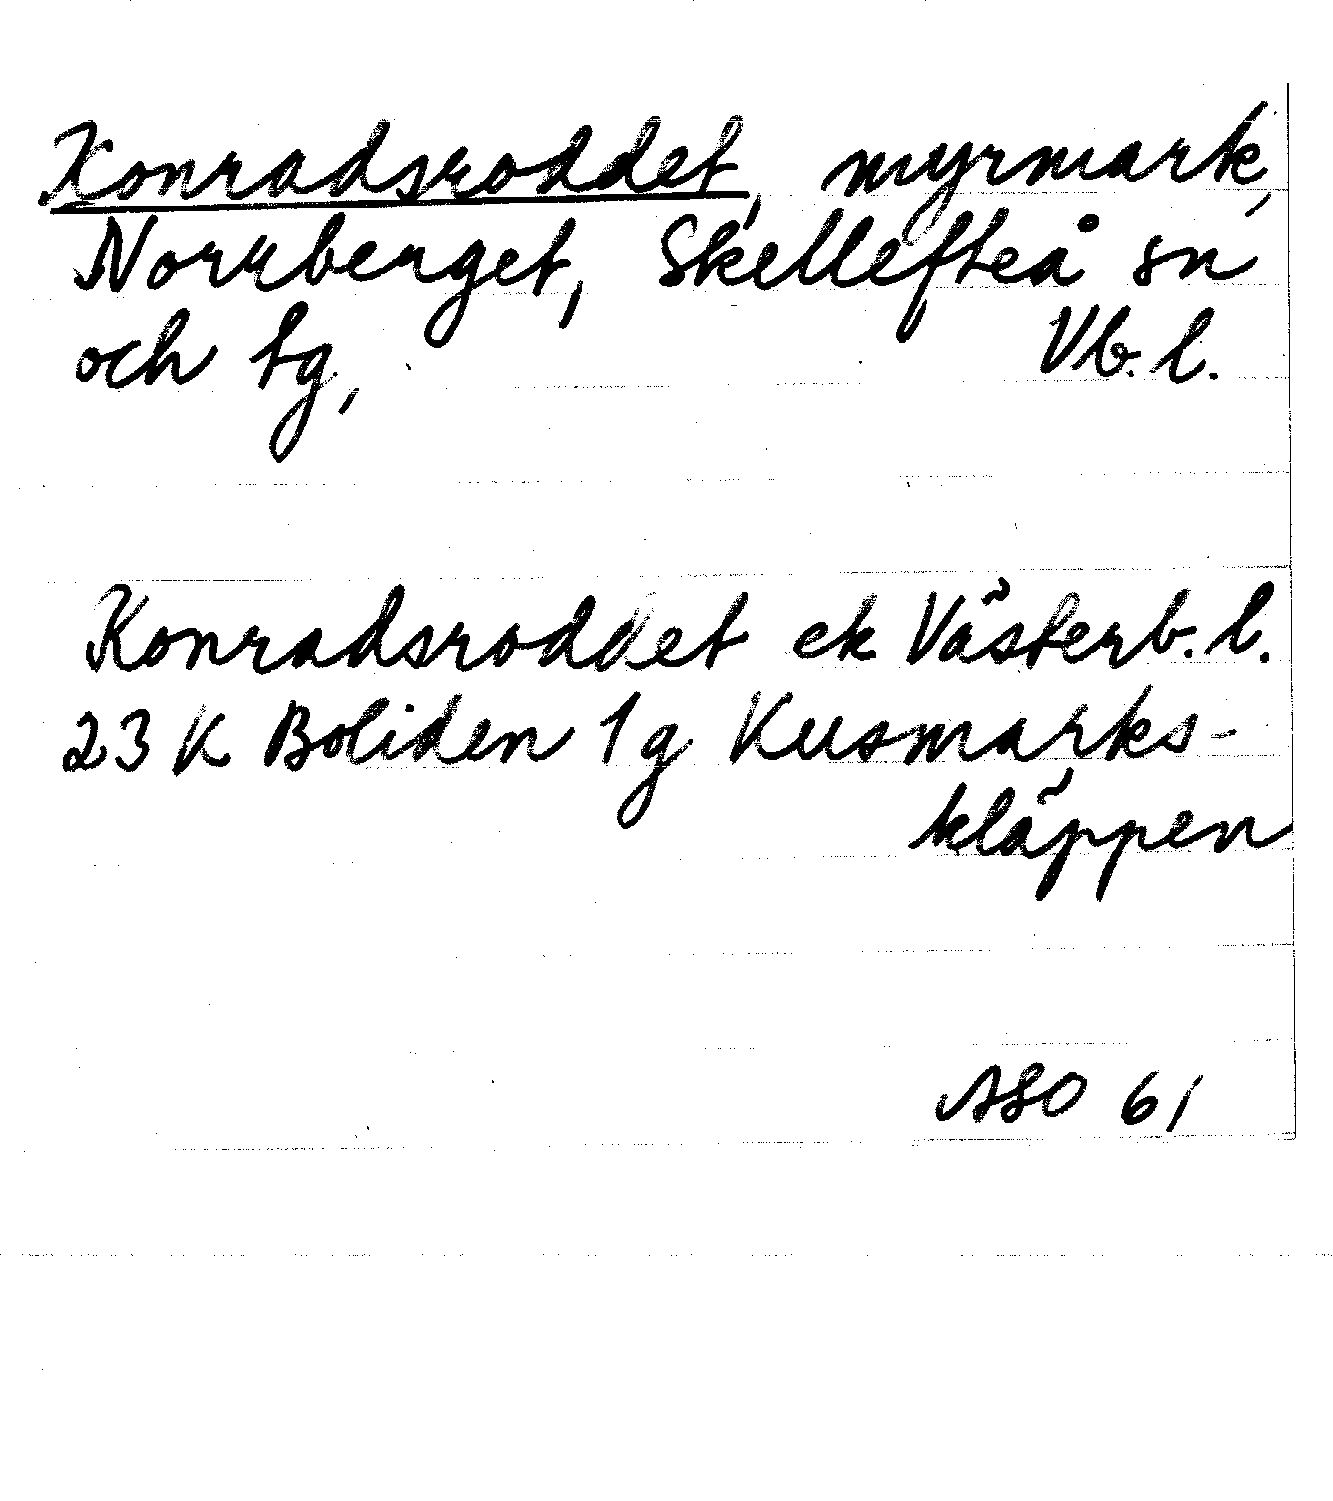 Konradsroddet, myrmark,
Norrberget, Skellefteå sn
och tg, Vb. l.
Konradsroddet ek Västerb. l.
23 K Boliden 1 g Kusmarks-
kläppen
ASO 61